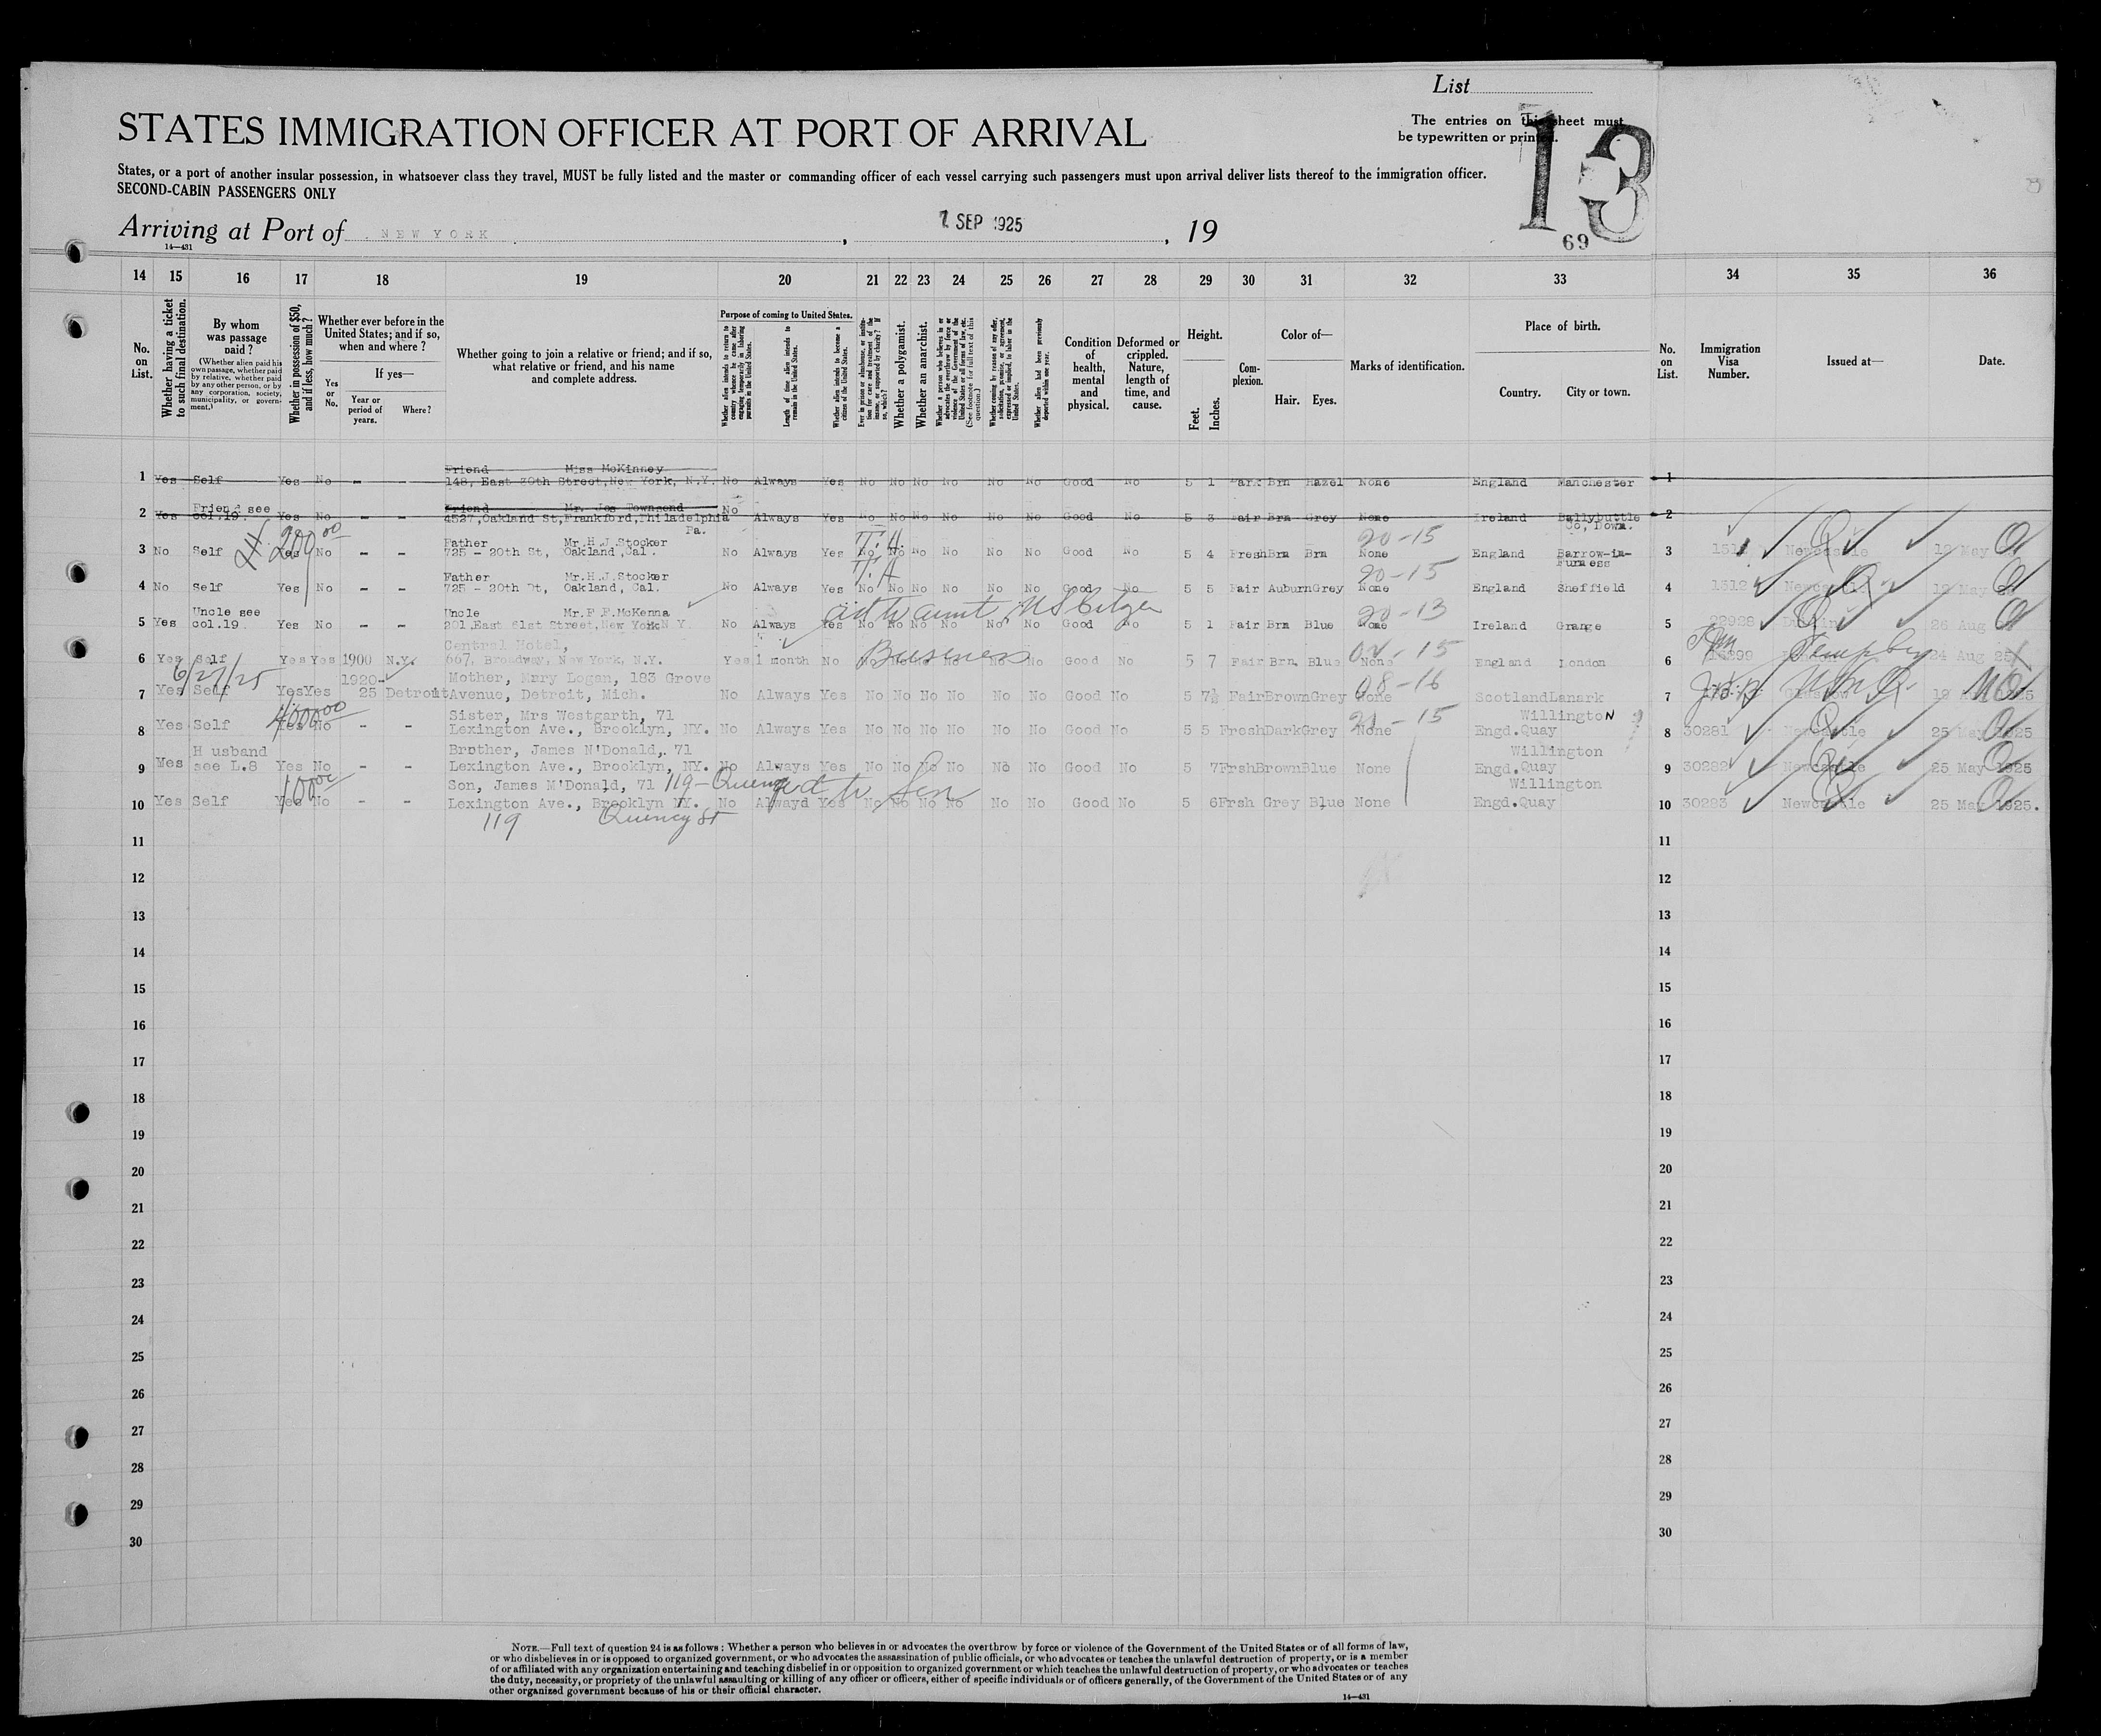 List
The entries on this sheet must
be typewritten or printed.
13
69
STATES IMMIGRATION OFFICER AT PORT OF ARRIVAL
States, or a port of another insular possession, in whatsoever class they travel, MUST be fully listed and the master or commanding officer of each vessel carrying such passengers must upon arrival deliver lists thereof to the immigration officer.
SECOND-CABIN PASSENGERS ONLY
Arriving at Port of NEW YORK, 7 SEP 1925, 19
14—431
14 15 16 17 18 19 20 21 22 23 24 25 26 27 28 29 30 31 32 33 34 35 36
No. on List.
Whether having a ticket to such final destination.
By whom was passage paid?
(Whether alien paid his own passage, whether paid by relative, whether paid by any other person, or by any corporation, society, municipality, or government.)
Whether in possession of $50, and if less, how much?
Whether ever before in the United States; and if so, when and where?
Yes or No.
If yes—
Year or period of years.
Where?
Whether going to join a relative or friend; and if so, what relative or friend, and his name and complete address.
Purpose of coming to United States.
Whether alien intends to return to country whence he came after engaging temporarily in laboring pursuits in the United States.
Length of time alien intends to remain in the United States.
Whether alien intends to become a citizen of the United States.
Ever in prison or almshouse, or institution for care and treatment of the insane, or supported by charity? If so, which?
Whether a polygamist.
Whether an anarchist.
Whether a person who believes in or advocates the overthrow by force or violence of the Government of the United States or all forms of law, etc. (See footnote for full text of this question.)
Whether coming by reason of any offer, solicitation, promise, or agreement, expressed or implied, to labor in the United States.
Whether alien had been previously deported within one year.
Condition of health, mental and physical.
Deformed or crippled. Nature, length of time, and cause.
Height.
Feet. Inches.
Complexion.
Color of—
Hair. Eyes.
Marks of identification.
Place of birth.
Country. City or town.
No. on List.
Immigration Visa Number.
Issued at—
Date.
Friend Miss McKinney
1 Yes Self Yes No - - 148, East 30th Street, New York, N.Y. No Always Yes No No No No No No Good No 5 1 Dark Brn Hazel None England Manchester 1
Friend see Friend Mr. Jos Townsend No
2 Yes col.19. Yes No 4527, Oakland St, Frankford, Philadelphia Always Yes No No No No No No Good No 5 3 Fair Brn Grey None Ireland Ballybuttle 2
Pa. Co, Down.
200 00 Father Mr.H.J.Stocker T.A 20-15
3 No Self Yes No - - 725 - 20th St, Oakland, Cal. No Always Yes No No No No No No Good No 5 4 Fresh Brn Brn None England Barrow-in-Furness 3 Newcastle 12 May
Father Mr.H.J.Stocker T.A 20-15
4 No Self Yes No - - 725 - 20th St, Oakland, Cal. No Always Yes No No No No No No Good No 5 5 Fair Auburn Grey None England Sheffield 4 1312 Newcastle 12 May
Uncle see Uncle Mr.F.F.McKenna adt to aunt, US Citizen 20-13
5 Yes col.19. Yes No - - 201, East 61st Street, New York N.Y. No Always Yes No No No No No No Good No 5 1 Fair Brn Blue None Ireland Grange 5 22928 Dublin 26 Aug
Central Hotel, Business 04-15
6 Yes Self Yes Yes 1900 N.Y. 667, Broadway, New York, N.Y. Yes 1 month No No No No Good No 5 7 Fair Brn. Blue None England London 6 Temp 24 Aug 25
6/27/25 1920- Mother, Mary Logan, 183 Grove 08-16
7 Yes Self Yes Yes 25 Detroit Avenue, Detroit, Mich. No Always Yes No No No No No No Good No 5 7½ Fair Brown Grey None Scotland Lanark 7 Glasgow
4000 00 Sister, Mrs Westgarth, 71 20-15 Willington
8 Yes Self Yes No - - Lexington Ave., Brooklyn, NY. No Always Yes No No No No No No Good No 5 5 Fresh Dark Grey None Engd. Quay 8 30281 Newcastle 25 May 1925
H usband Brother, James M'Donald, 71 Willington
9 Yes see L.8 Yes No - - Lexington Ave., Brooklyn, NY. No Always Yes No No No No No No Good No 5 7 Frsh Brown Blue None Engd. Quay 9 30282 Newcastle 25 May 1925
100 00 Son, James M'Donald, 71 119-Quency adt to Son Willington
10 Yes Self Yes No - - Lexington Ave., Brooklyn NY. No Alwayd Yes No No No No No No Good No 5 6 Frsh Grey Blue None Engd. Quay 10 30283 Newcastle 25 May 1925.
119 Quency St
11 11
12 12
13 13
14 14
15 15
16 16
17 17
18 18
19 19
20 20
21 21
22 22
23 23
24 24
25 25
26 26
27 27
28 28
29 29
30 30
NOTE.—Full text of question 24 is as follows: Whether a person who believes in or advocates the overthrow by force or violence of the Government of the United States or of all forms of law,
or who disbelieves in or is opposed to organized government, or who advocates the assassination of public officials, or who advocates or teaches the unlawful destruction of property, or is a member
of or affiliated with any organization entertaining and teaching disbelief in or opposition to organized government or which teaches the unlawful destruction of property, or who advocates or teaches
the duty, necessity, or propriety of the unlawful assaulting or killing of any officer or officers, either of specific individuals or of officers generally, of the Government of the United States or of any
other organized government because of his or their official character.
14—431